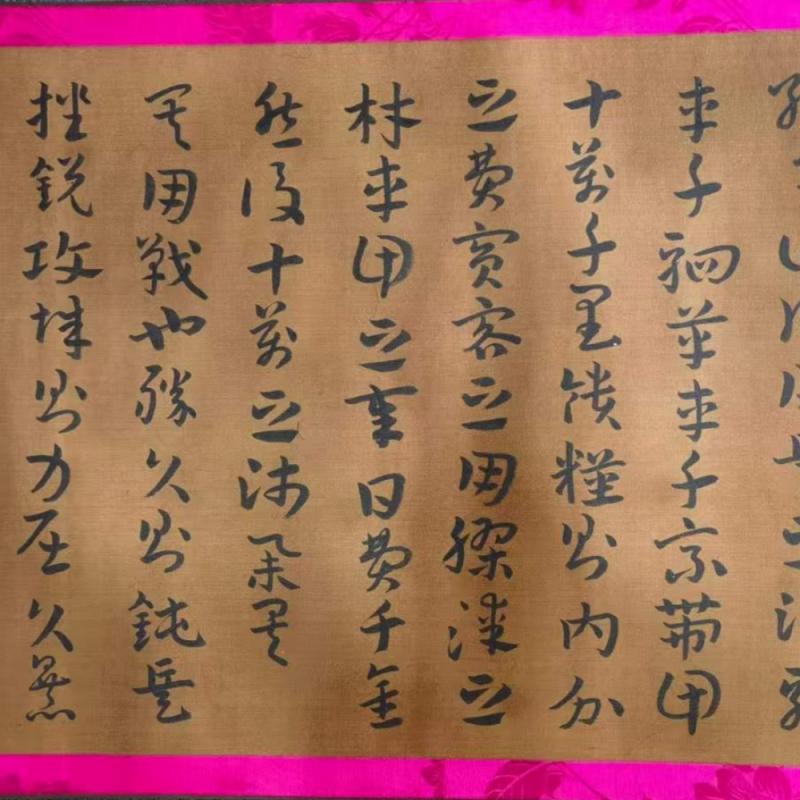 車千駟革車千乘帶甲
十萬千里饋糧則內外
之費賓客之用膠漆之
材車甲之奉日費千金
然後十萬之師舉矣
其用戰也勝久則鈍兵
挫銳攻城則力屈久暴